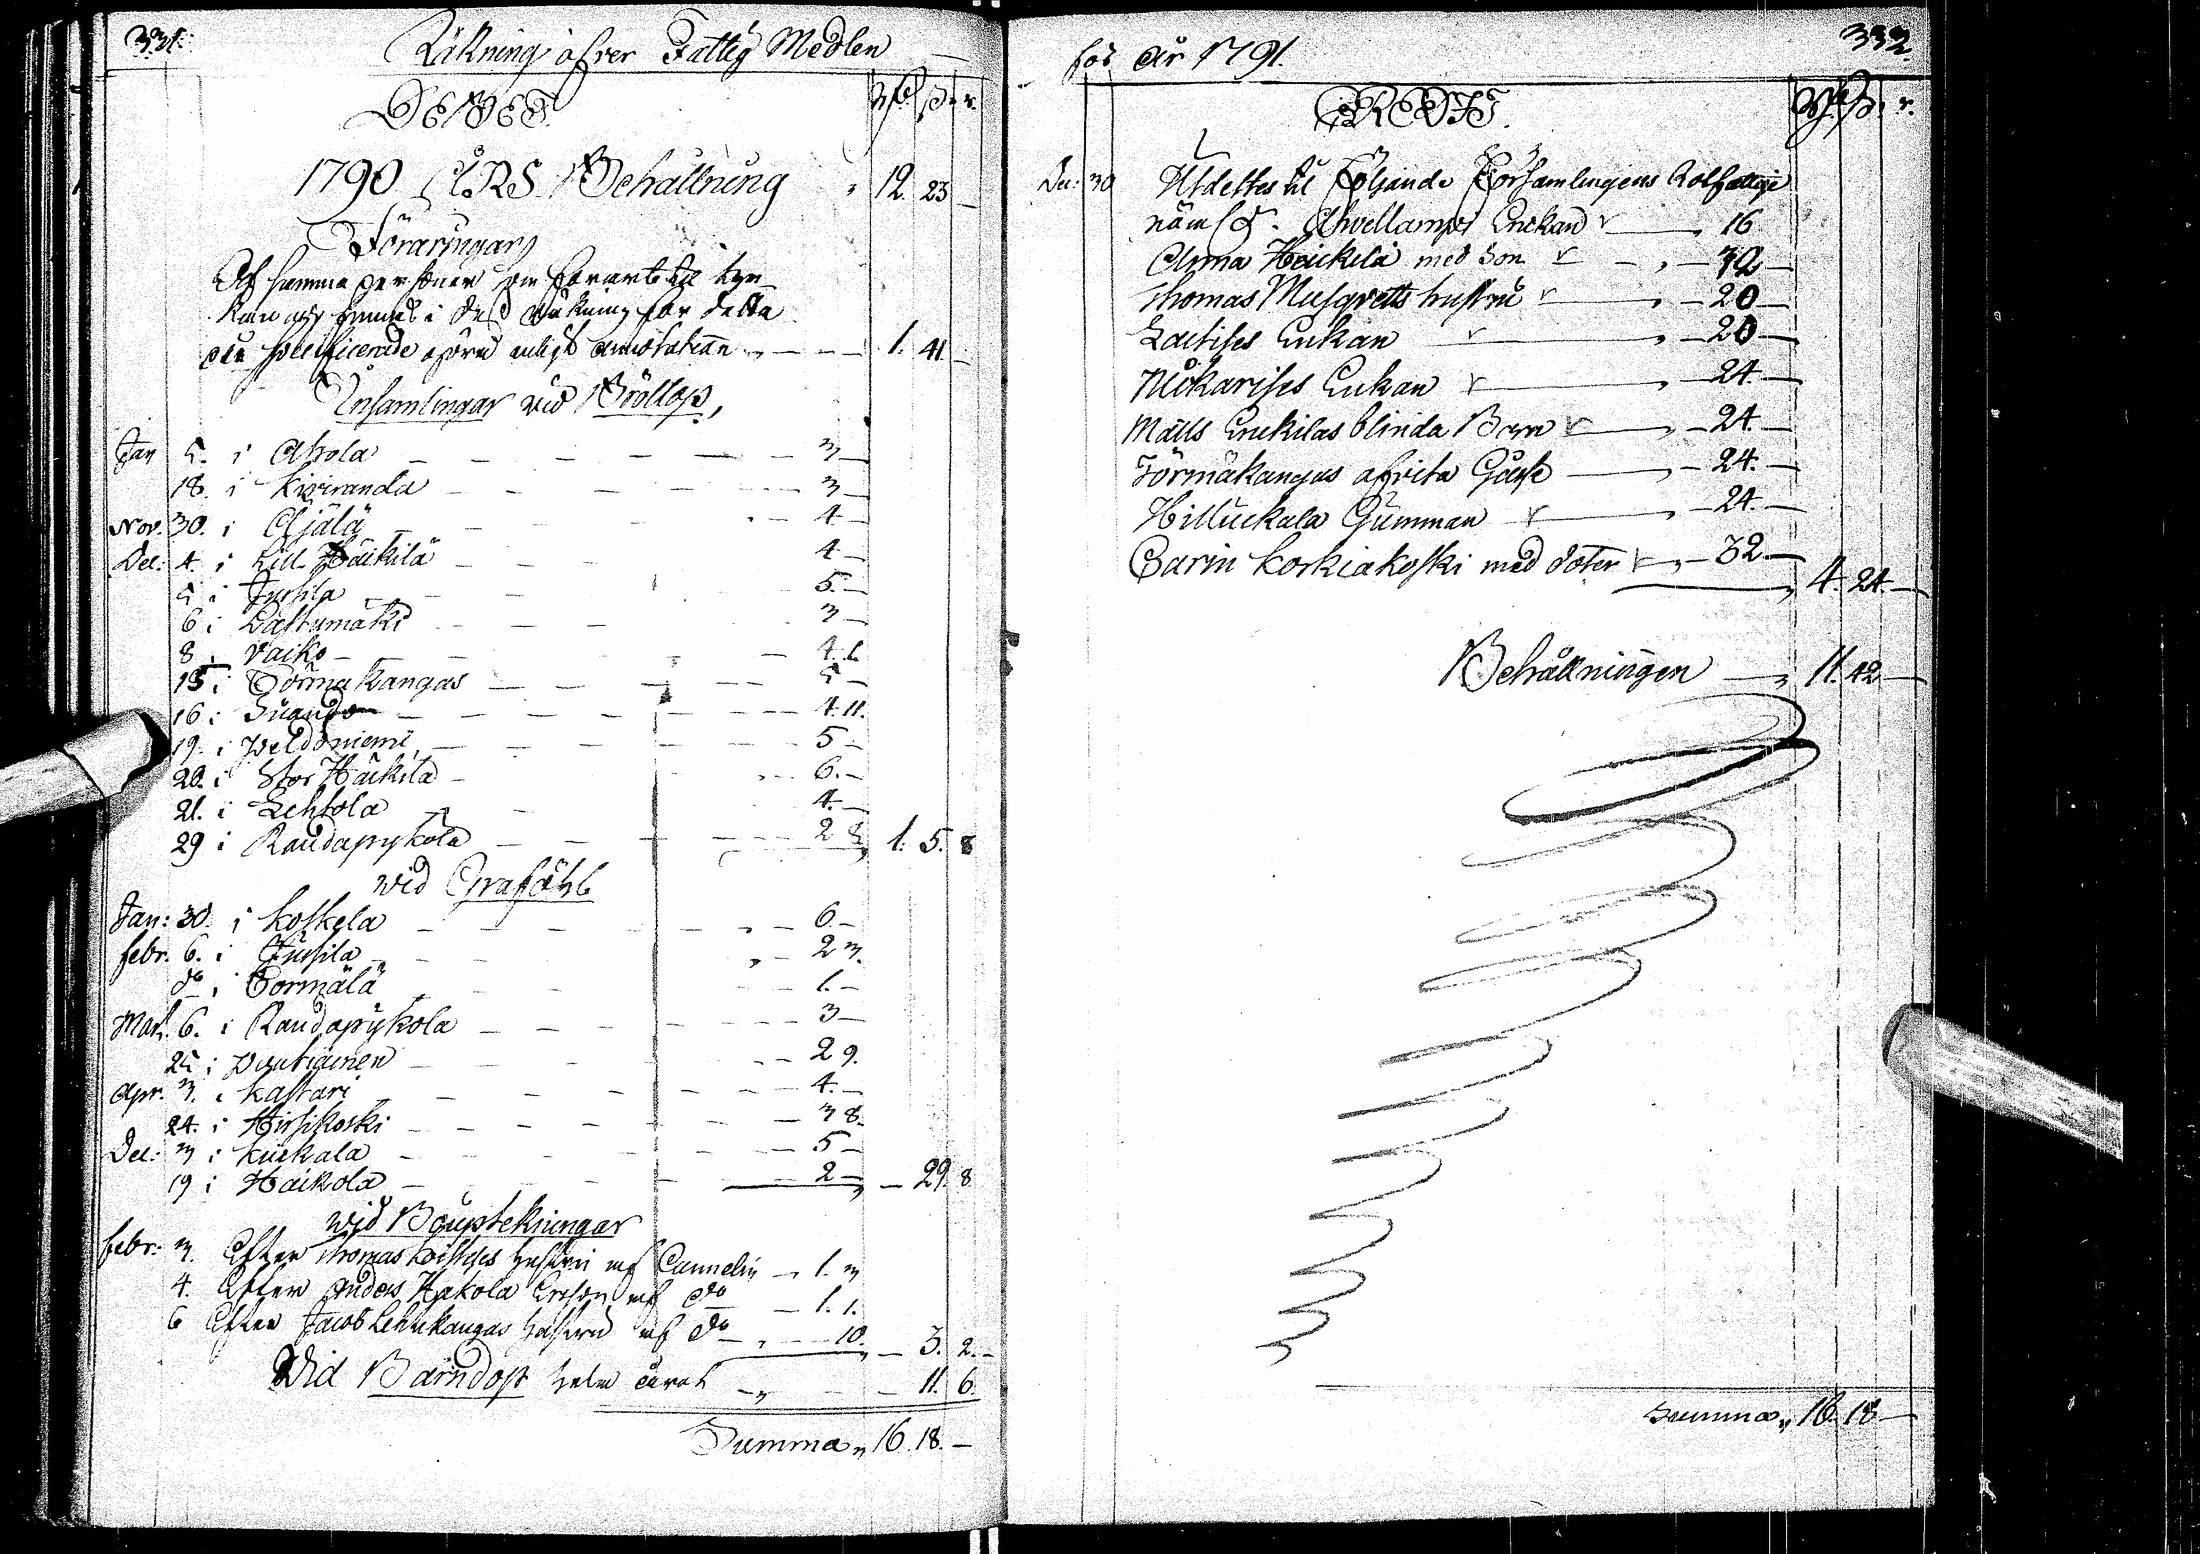 331.
Räkning öfver Fattig Medlen
DEBET.
Rd. ß. r.
1790 ÅRS Behållning " 12. 23 –
Föräringar
Af samma personer som förärt til kyr-
kan och finnas i dess Räkning för detta
år specificerade öfrid enligt annotation " – – – 1. 41. –
Insamlingar vid Bröllop,
Jan 5. i Ahola – – – – – 3 –
18. i Kiviranda – – – – 3 –
Nov. 30. i Cljälä – – – 4 –
Dec. 4. i Lill Häikilä – – – 4 –
5 i Jussila – – – 5. –
6 i Lastumäki – – – 3 –
8 i Vaiko – – – – 4. 6
15 i Törmakangas – – – – 5 –
16 i Suando – – – – 4. 11.
19. i Weldoniemi, – – – – 5 –
20. i Stor Häikilä – – – 6. –
21. i Lehtola – – – 4. –
29 i Raudapykölä – – – – 2 8 1. 5. 8
wid Graföhl
Jan: 30. i Koskela – – – – 6. –
Febr. 6. i Jussila – – – 2 3.
do i Tormälä – – – 1. –
Mart. 6. i Raudapykola – – – – 3 –
25 i Pentiainen – – – 2 9.
Apr. 3. i Kastari – – – – 4. –
24. i Hirsikoski – – – – 3 8.
Dec: 3 i Kuckala – – – – 5 –
19 i Haikola – – – – 2 – – 29. 8
wid Boupptekningar
Febr: 3. Efter Thomas hustru af Cannelin – 1. 3
4. Efter Anders Hakola af do – 1. 1.
6 Efter Jacob Lehtikangas hustru af do " – 10. – 3. 2. –
Wid Barndop hela året – " – – 11. 6.
Summa " 16. 18. –
för år 1791.
332.
CREDIT.
Rd. ß. r.
Dec: 30 Utdeltes til följande Församlingens Rotfattige
näml. Ahvellampi Enckan – 16
Anna Häickilä med Son – , – 32 –
Thomas Musgretts hustru – , – 20 –
Laitises Enkan – , – 20 –
Nickarises Enkan – , – 24. –
Matts Enckilas blinda Barn – , – 24. –
Törmäkangas Gosse – , – 24. –
Hilluckala Gumman – , – 24. –
Carin Korkiakoski med doter – , – 32 –
4. 24. –
Behållningen – , 11. 42 –
Summa " 16. 18 –